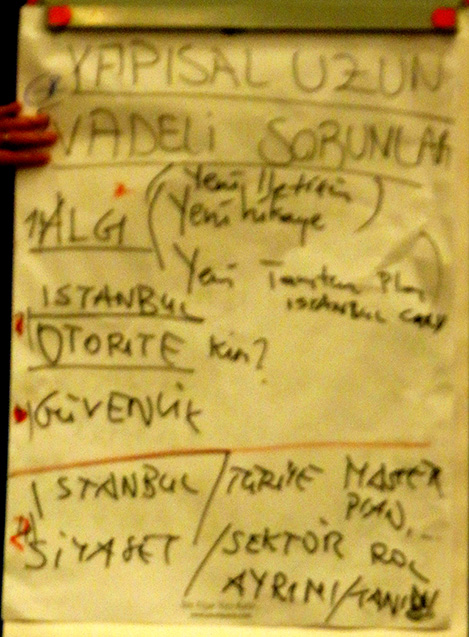 YAPISAL UZUN
VADELİ SORUNLAR
ALGI (Yeni İletişim
Yeni hikaye)
Yeni Tanıtım Planı
İSTANBUL CARD
İSTANBUL
OTORİTE Kim?
GÜVENLİK
İSTANBUL / TÜRİYE MASTER
PLAN...
SİYASET / SEKTÖR ROL
AYRIMI/TANIMI